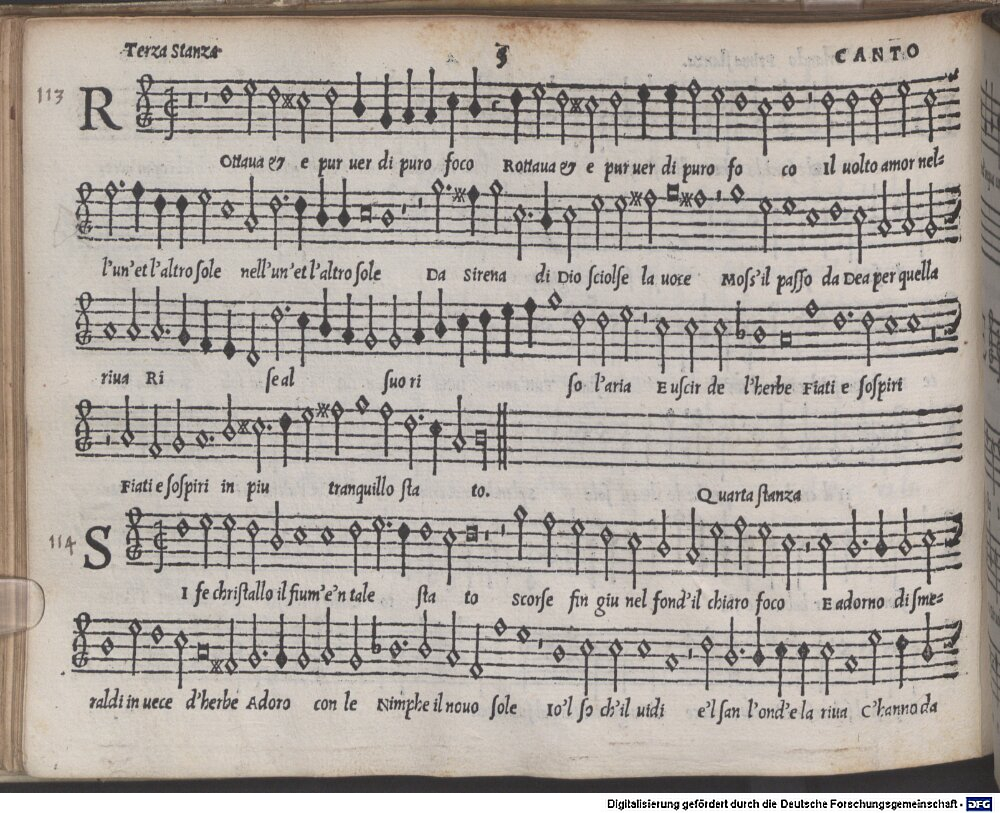 Terza Stanza 5 CANTO
113
R Ottaua & e pur uer di puro foco Rottaua & e pur uer di puro fo co Il uolto amor nel=
l'un' et l'altro sole nell'un' et l'altro sole Da Sirena di Dio sciolse la uoce Moss'il passo da Dea per quella
riua Ri se al suo ri so l'aria E uscir de l'herbe Fiati e sospiri
Fiati e sospiri in piu tranquillo sta to. Quarta stanza
114
S I fe christallo il fium'e'n tale sta to scorse fin giu nel fond'il chiaro foco E adorno di sme=
raldi in uece d'herbe Adoro con le Nimphe il nouo sole Io'l so ch'il uidi e'l san l'ond'e la riua C'hanno da
Digitalisierung gefördert durch die Deutsche Forschungsgemeinschaft - DFG